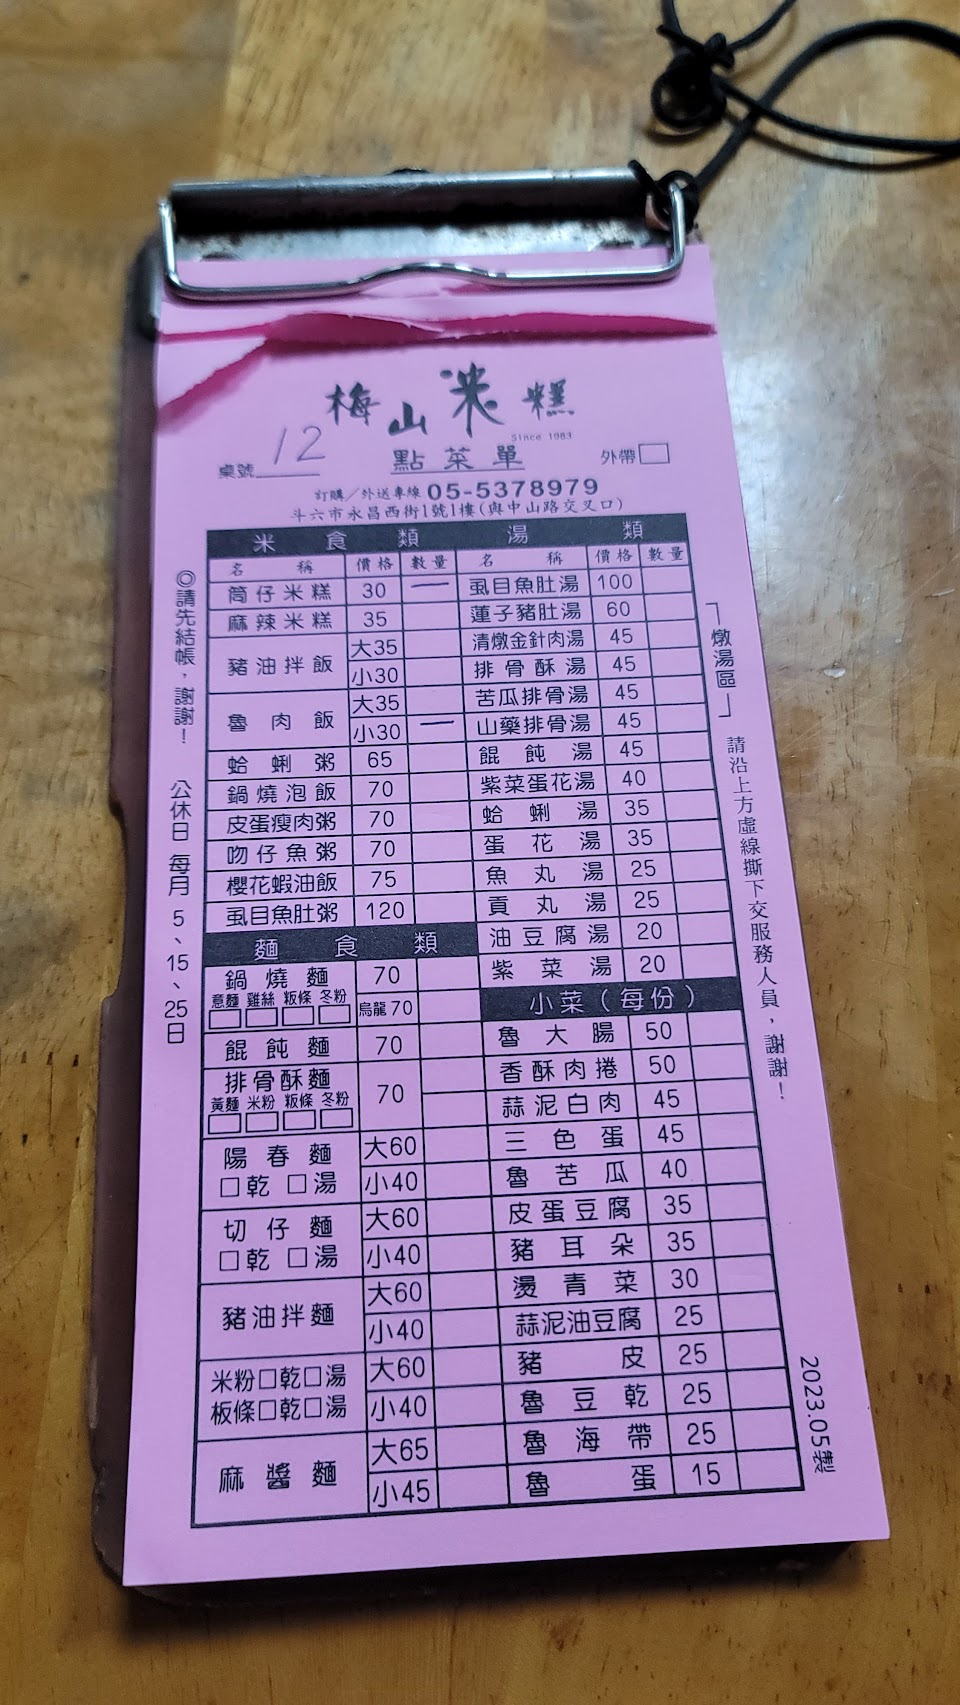 梅山米糕
Since 1983
桌號 12 點菜單 外帶□
訂購／外送專線 05-5378979
斗六市永昌西街1號1樓(與中山路交叉口)
◎請先結帳，謝謝！ 公休日 每月 5、15、25日
米食類
名稱 價格 數量
筒仔米糕 30 一
麻辣米糕 35
豬油拌飯 大35
小30
魯肉飯 大35
小30 一
蛤蜊粥 65
鍋燒泡飯 70
皮蛋瘦肉粥 70
吻仔魚粥 70
櫻花蝦油飯 75
虱目魚肚粥 120
麵食類
鍋燒麵 70
意麵 雞絲 粄條 冬粉 烏龍70
□ □ □ □
餛飩麵 70
排骨酥麵 70
黃麵 米粉 粄條 冬粉
□ □ □ □
陽春麵 大60
□乾 □湯 小40
切仔麵 大60
□乾 □湯 小40
豬油拌麵 大60
小40
米粉□乾□湯 大60
板條□乾□湯 小40
麻醬麵 大65
小45
湯類
名稱 價格 數量
虱目魚肚湯 100
蓮子豬肚湯 60
清燉金針肉湯 45
排骨酥湯 45
苦瓜排骨湯 45
山藥排骨湯 45
餛飩湯 45
紫菜蛋花湯 40
蛤蜊湯 35
蛋花湯 35
魚丸湯 25
貢丸湯 25
油豆腐湯 20
紫菜湯 20
小菜(每份)
魯大腸 50
香酥肉捲 50
蒜泥白肉 45
三色蛋 45
魯苦瓜 40
皮蛋豆腐 35
豬耳朵 35
燙青菜 30
蒜泥油豆腐 25
豬皮 25
魯豆乾 25
魯海帶 25
魯蛋 15
「燉湯區」
請沿上方虛線撕下交服務人員，謝謝！
2023.05製